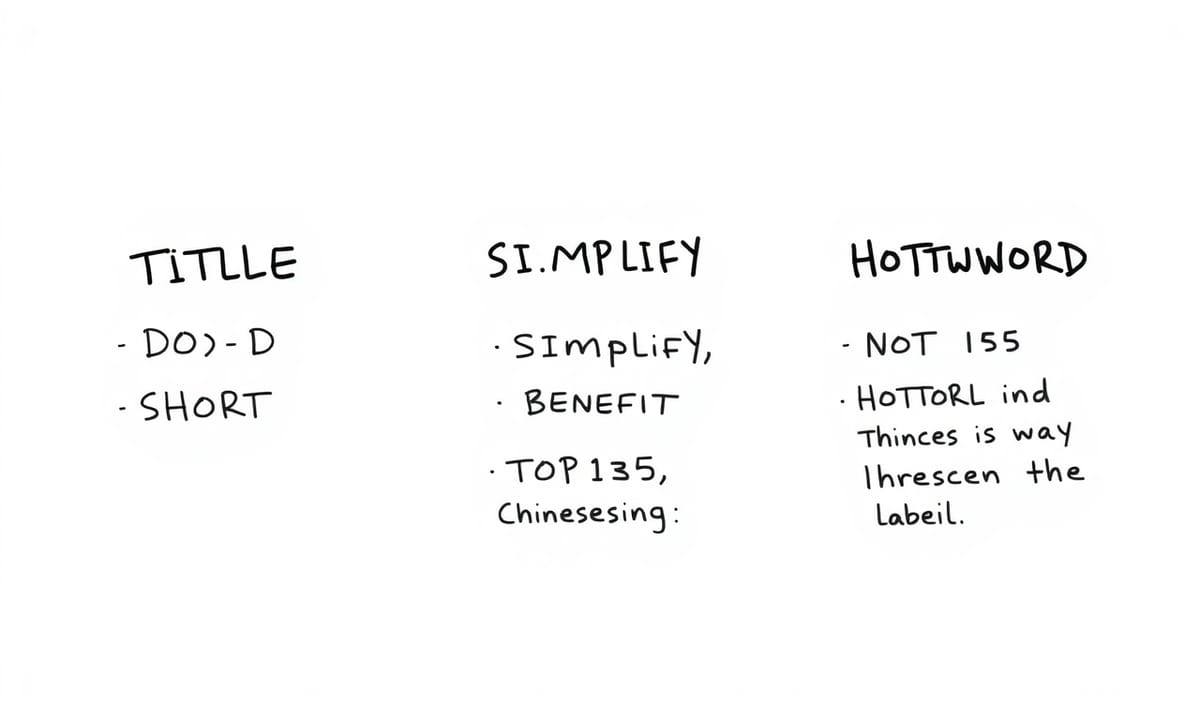 TiTLLE
- DO)-D
- SHORT
SI.MPLIFY
· SImpLiFY,
· BENEFIT
· TOP 135,
Chinesesing:
HOTTWWORD
- NOT 155
· HOTTORL ind
Thinces is way
Ihrescen the
Labeil.